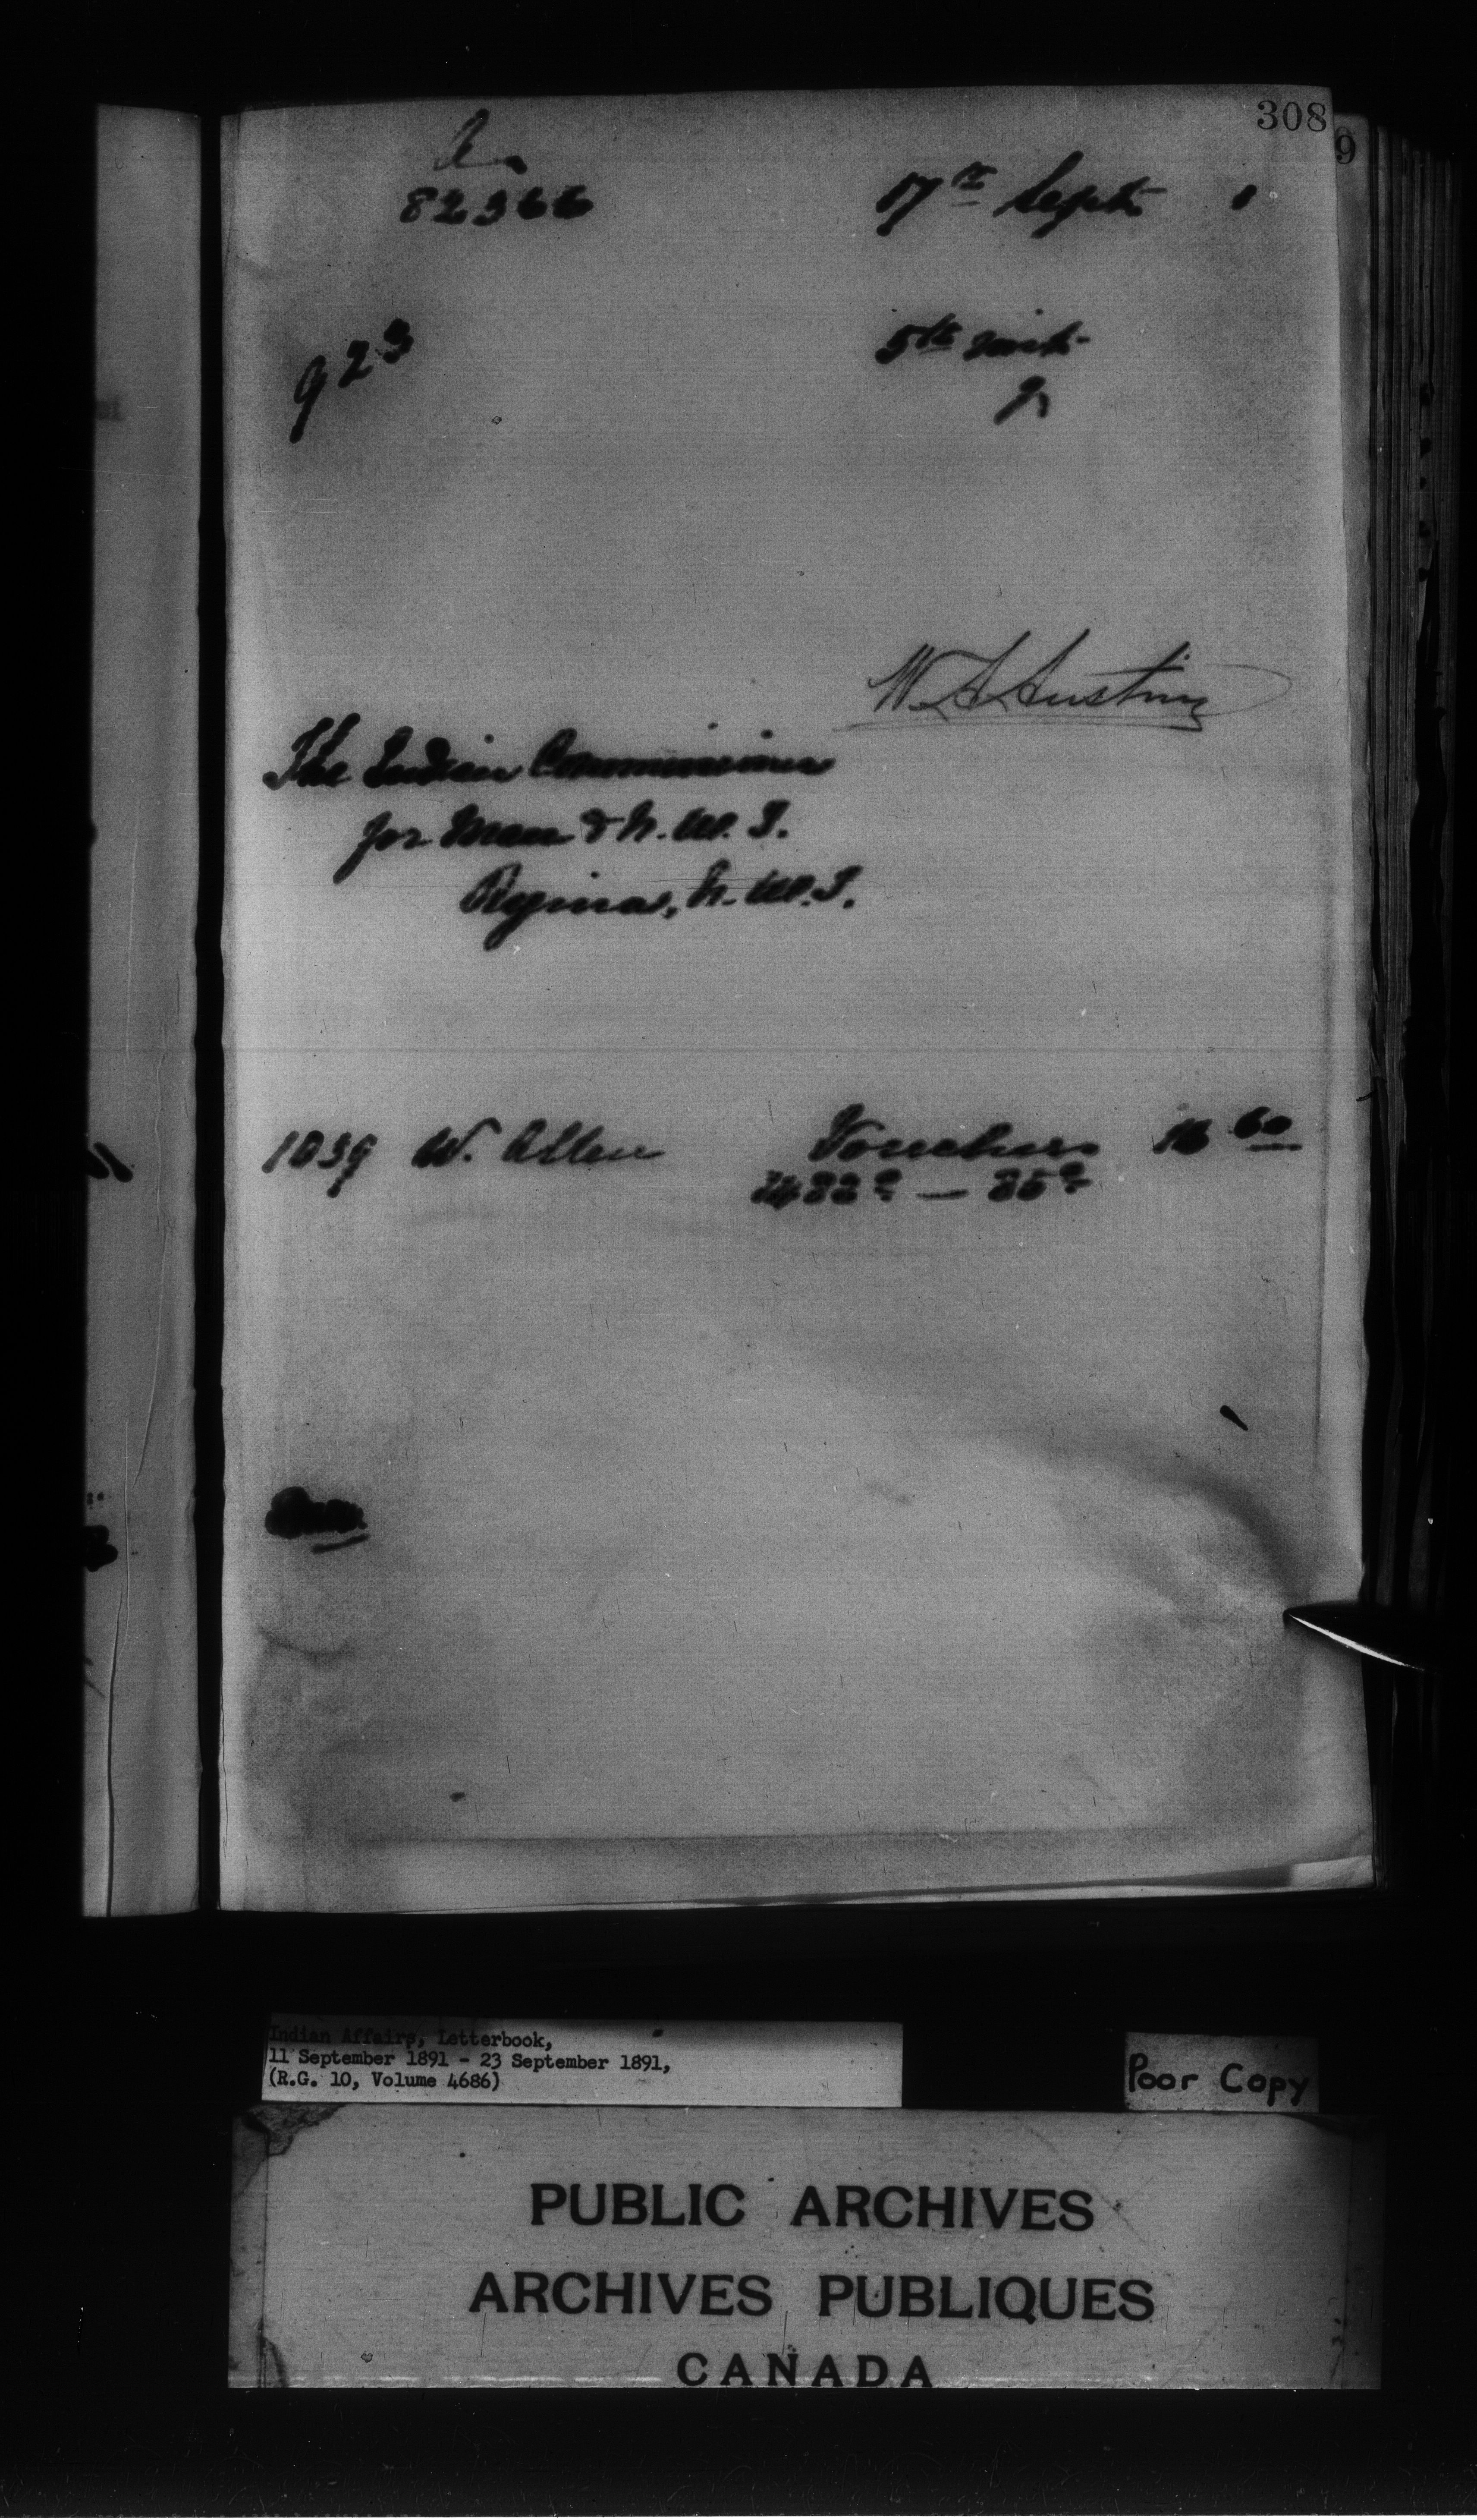 308
9
82366
17th Sept 1
923
5th inst
W. A. Austin
The Indian Commissioner
for Man & N. W. T.
Regina, N. W. T.
1039 W. Allen Vouchers 16 60
Indian Affairs, Letterbook,
11 September 1891 - 23 September 1891,
(R.G. 10, Volume 4686)
Poor Copy
PUBLIC ARCHIVES
ARCHIVES PUBLIQUES
CANADA